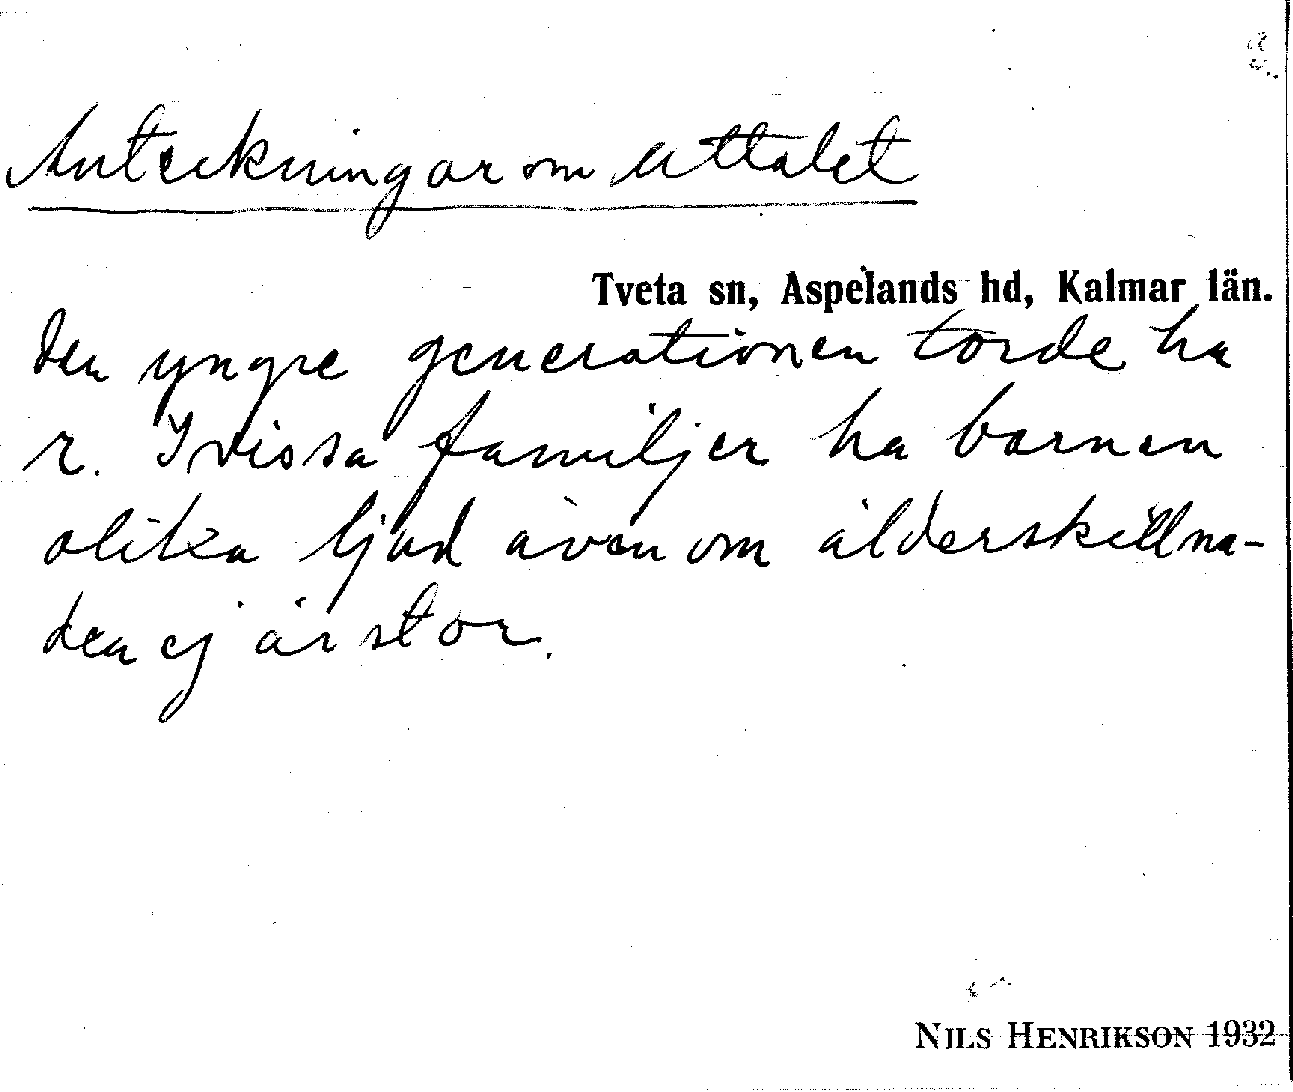 Anteckningar om uttalet
Tveta sn, Aspelands hd, Kalmar län.
den yngre generationen torde ha
r. I vissa familjer ha barnen
olika ljud även om ålderskillna-
den ej är stor.
NILS HENRIKSON 1932